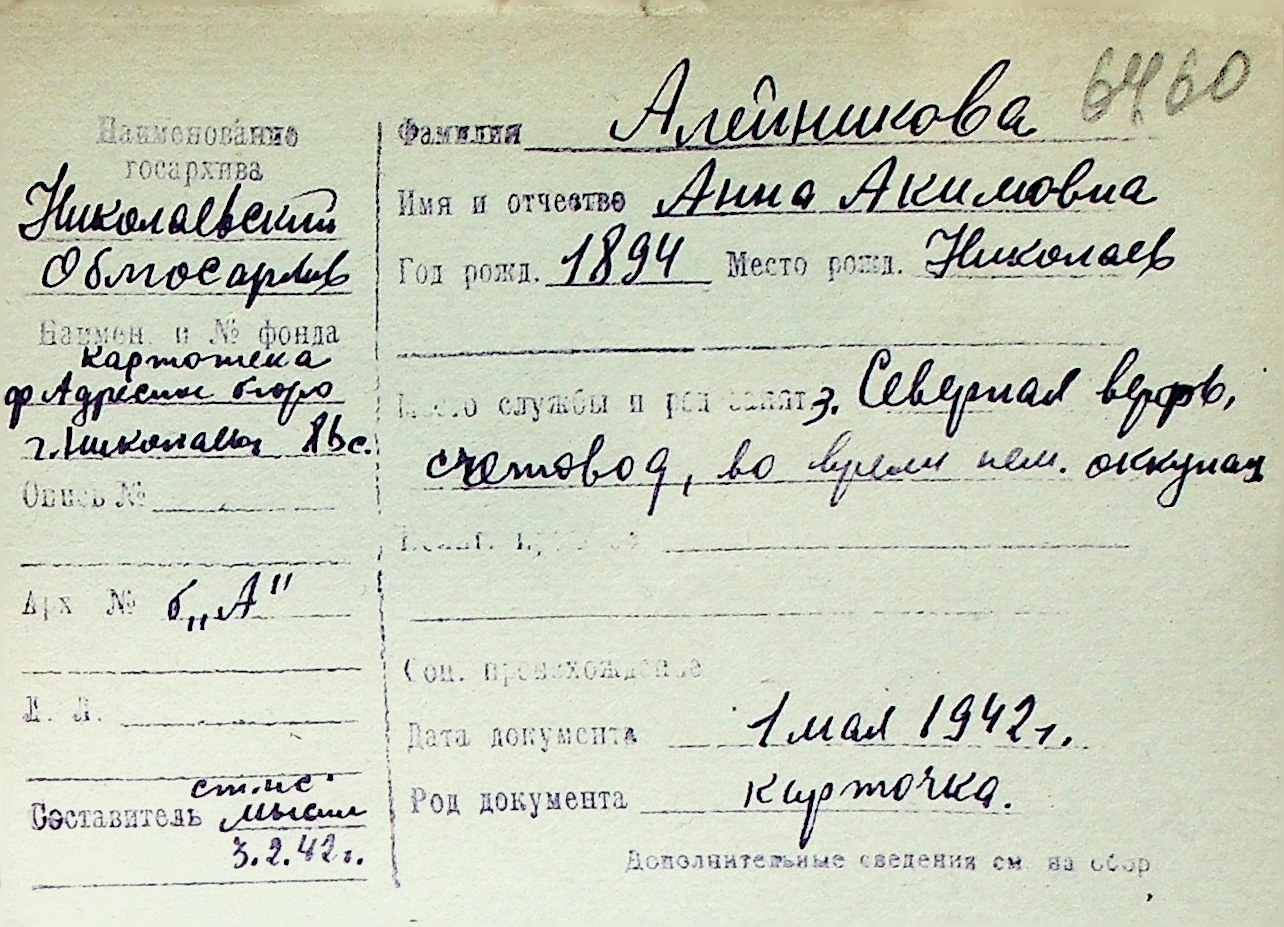 6460
Наименование
госархива
Николаевский
Облгосархив
Наимен. и № фонда
картотека
ф Адресное бюро
г. Николаев 86 с.
Опись №
Арх №
б „А"
Л. Л.
Составитель
3.2.42 г.
Фамилия Алейникова
Имя и отчество Анна Акимовна
Год рожд. 1894 Место рожд. Николаев
службы и род занят. Северная верфь,
счетовод, во время нем. оккупац
Соц. происхождение
Дата документа 1 мая 1942 г.
Род документа карточка.
Дополнительные сведения см на обор